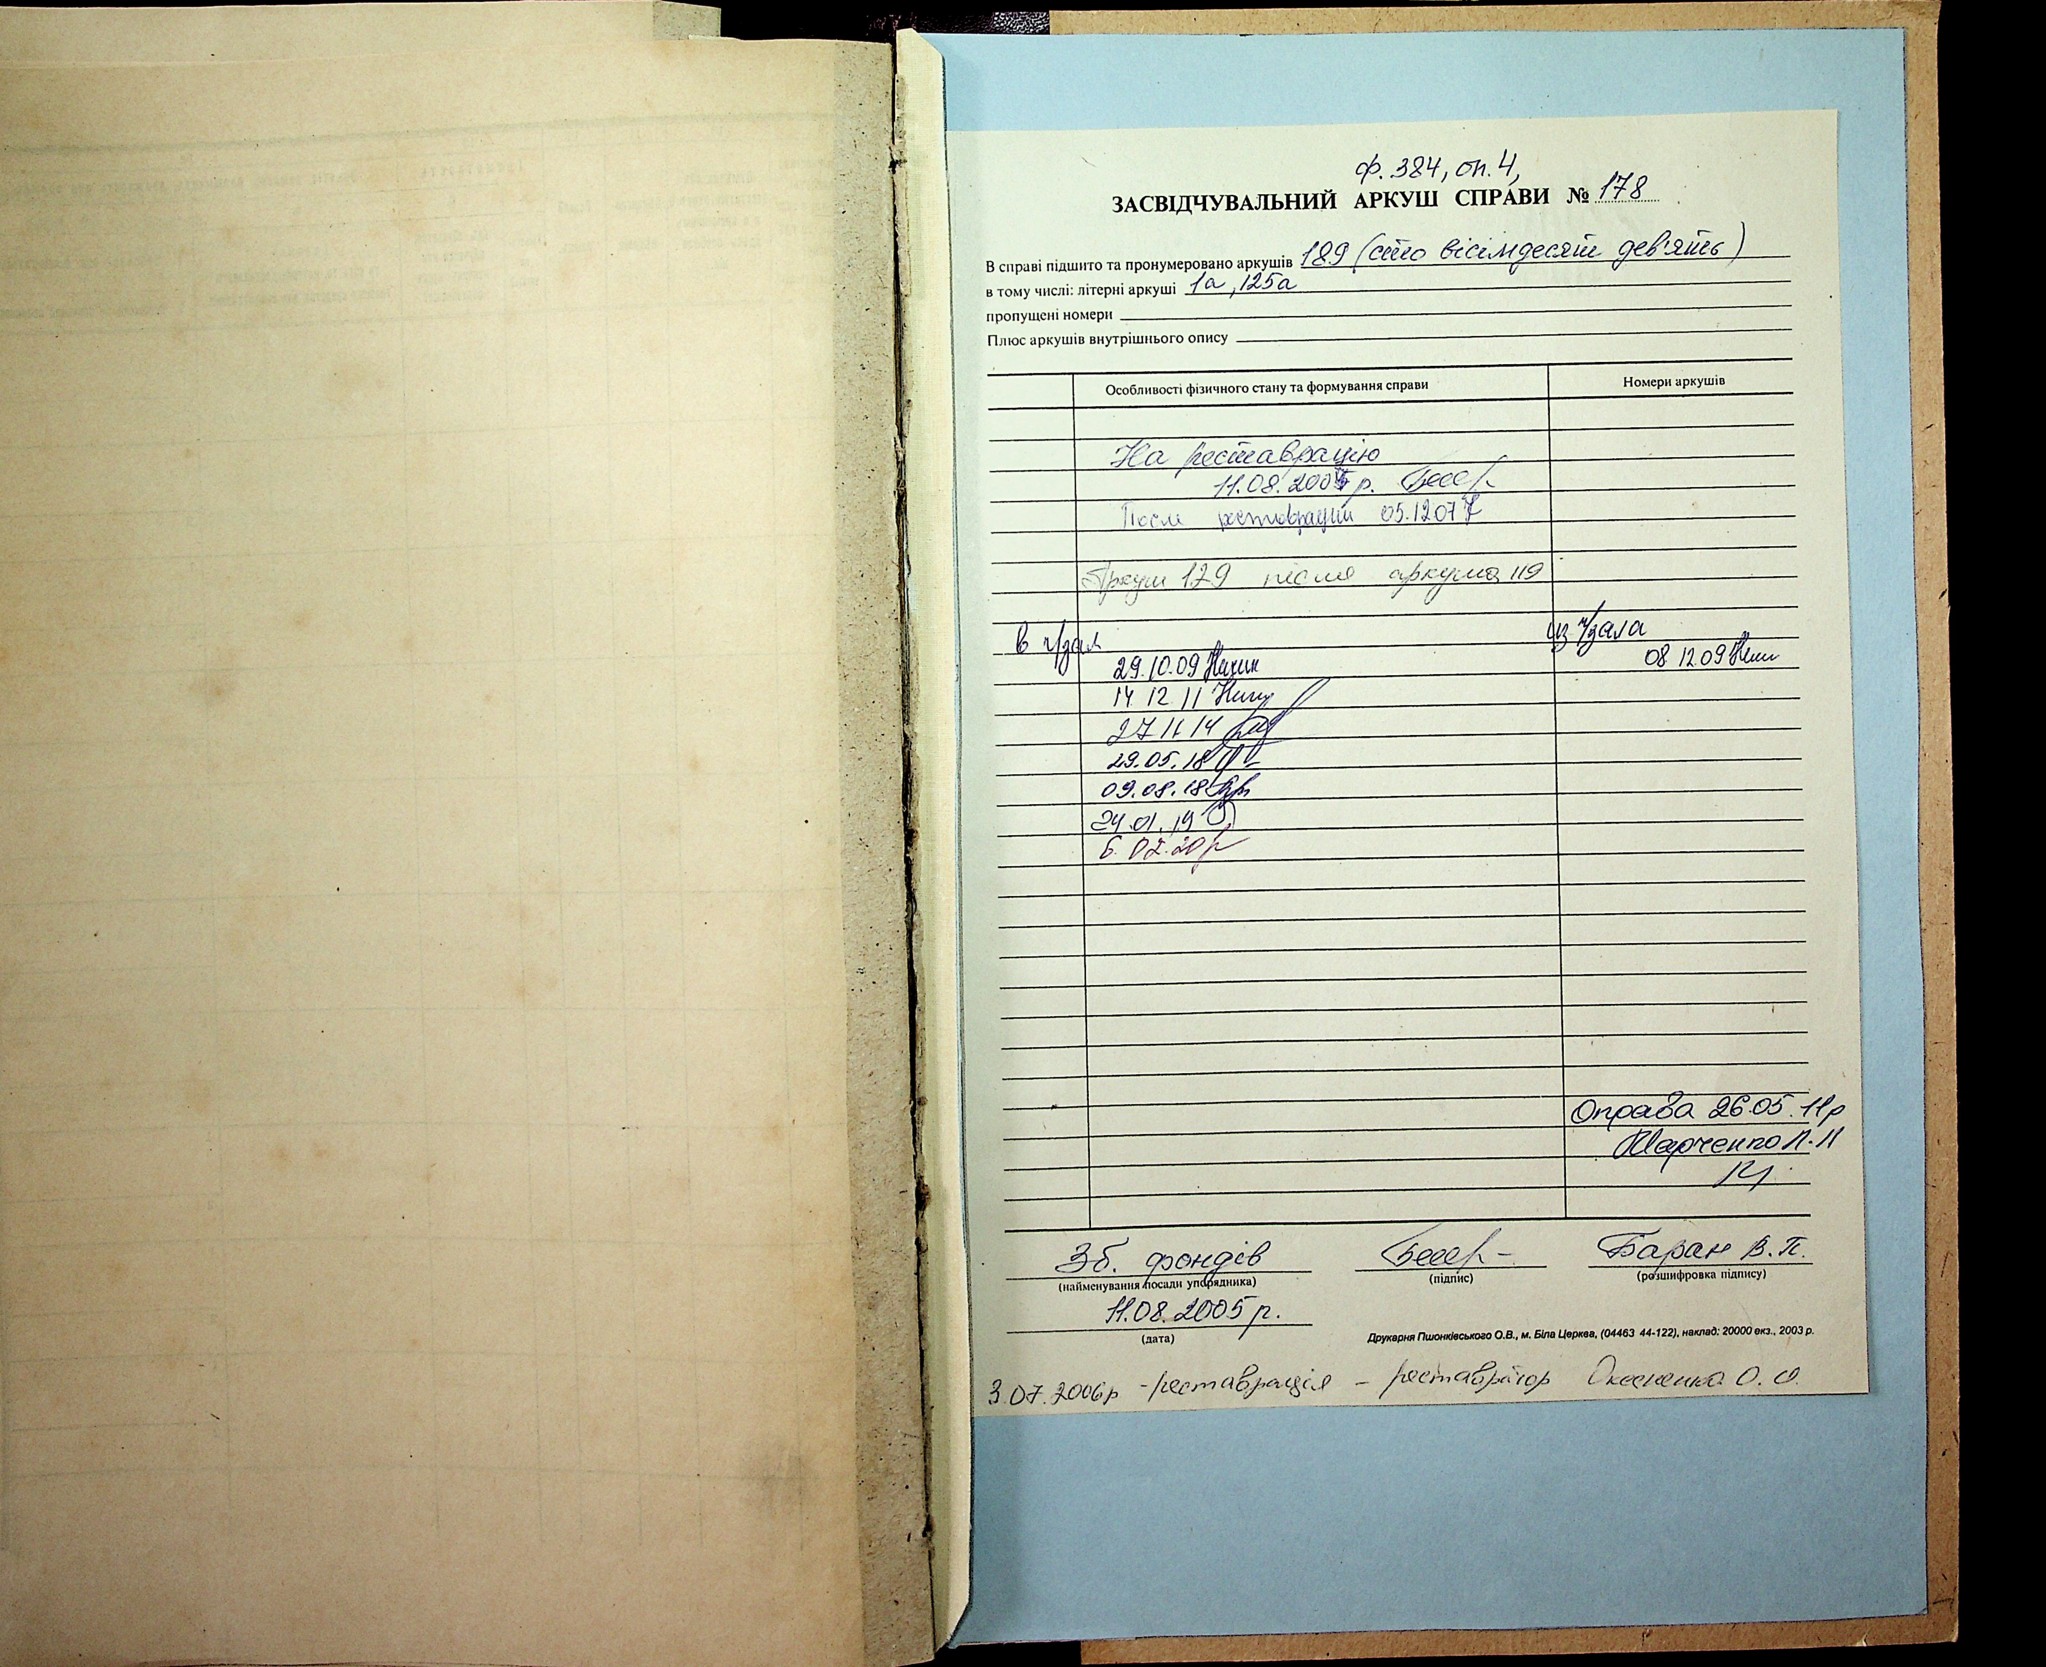 ф. 384, оп. 4,
ЗАСВІДЧУВАЛЬНИЙ АРКУШ СПРАВИ № 178
В справі підшито та пронумеровано аркушів 189 (сто вісімдесят дев'ять)
в тому числі: літерні аркуші 1а, 125а
пропущені номери
Плюс аркушів внутрішнього опису
Особливості фізичного стану та формування справи Номери аркушів
На реставрацію
11.08.2005 р.
После реставрации 05.12.07
Аркуш 129 після аркуша 119
в ч/зал из ч/зала
29.10.09 08.12.09
14.12.11
27.11.14
29.05.18
09.08.18
24.01.19
6.02.20
Оправа 26.05.11р
Марченко Л.П
Зб. фондів Баран В.П.
(найменування посади упорядника) (підпис) (розшифровка підпису)
11.08.2005 р.
(дата)
Друкарня Пшонківського О.В., м. Біла Церква, (04463 44-122), наклад: 20000 екз., 2003 р.
3.07.2006р - реставрація - реставратор